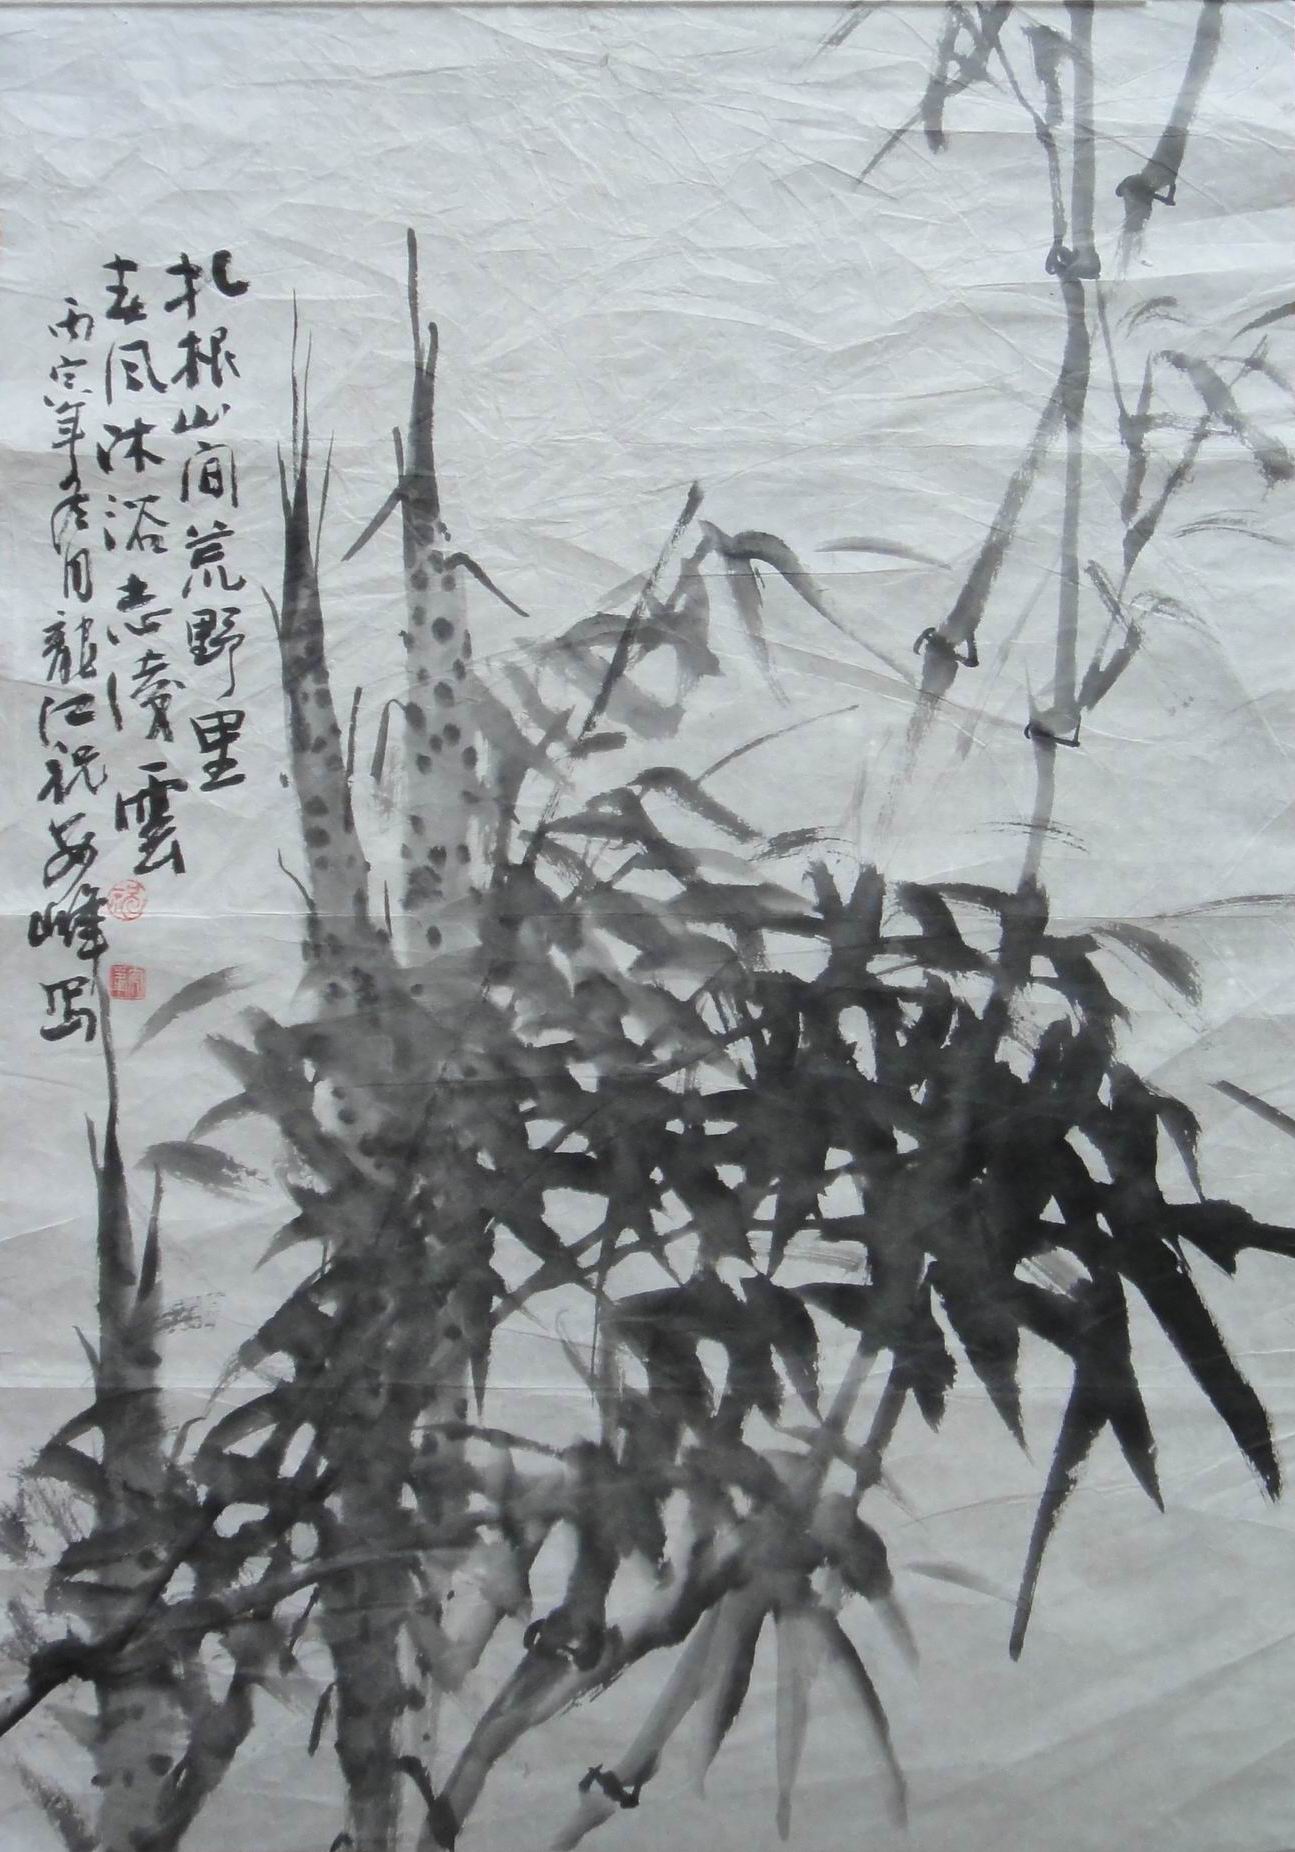 扎根山间荒野里
春风沐浴志凌雲
丙寅年冬月龍江祝安峰写